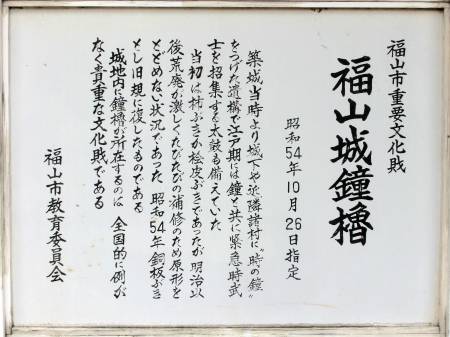 福山市重要文化財
福山城鐘櫓
昭和54年10月26日指定
築城当時より城下や近隣諸村に〝時の鐘〟
をつげた遺構で江戸期には鐘と共に緊急時武
士を招集する太鼓も備えていた
当初は柿ぶきか桧皮ぶきであったが明治以
後荒廃が激しくたびたびの補修のため原形を
とどめない状況であった 昭和54年銅板ぶき
とし旧規に復したものである
城地内に鐘櫓が所在するのは 全国的に例が
なく貴重な文化財である
福山市教育委員会